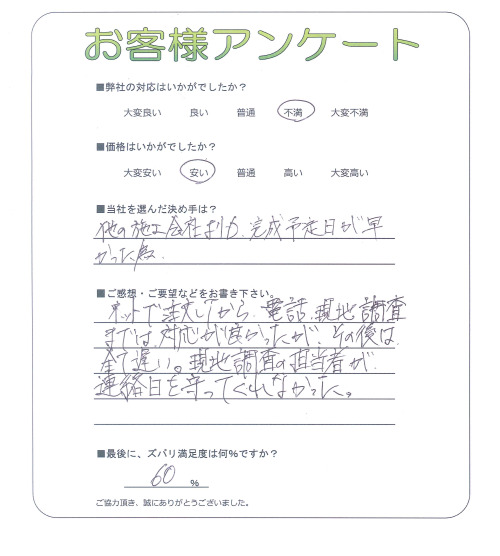 お客様アンケート
■弊社の対応はいかがでしたか？
大変良い 良い 普通 不満 大変不満
■価格はいかがでしたか？
大変安い 安い 普通 高い 大変高い
■当社を選んだ決め手は？
他の施工会社より、完成予定日が早
かった為。
■ご感想・ご要望などをお書き下さい。
ネットで注文してから、電話、現地調査
までは、対応が良かったが、その後は、
全て遅い。現地調査の担当者が、
連絡日を守ってくれなかった。
■最後に、ズバリ満足度は何%ですか？
60 %
ご協力頂き、誠にありがとうございました。